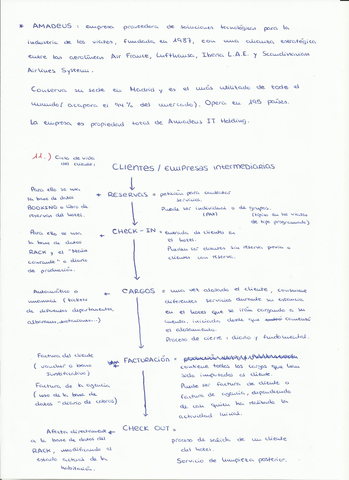 * AMADEUS : empresa proveedora de soluciones tecnológicas para la
industria de los viajes, fundada en 1987, con una alianza estratégica
entre las aerolíneas Air France, Lufthansa, Iberia L.A.E. y Scandinavian
Airlines System.
Conserva su sede en Madrid y es el más utilizado de todo el
mundo (acapara el 94% del mercado). Opera en 195 países.
La empresa es propiedad total de Amadeus IT Holding.
11.) Ciclo de vida
del cliente:
CLIENTES / EMPRESAS INTERMEDIARIAS
Para ello se usa
la base de datos
BOOKING o libro de
reservas del hotel.
← RESERVAS = petición para contratar
servicios.
Puede ser individual o de grupos.
Para ello se usa
la base de datos
RACK y el
o diario
de producción.
← CHECK-IN = entrada de cliente en
el hotel.
Pueden ser clientes sin reserva previa o
clientes con reserva.
Automático o
manual
de diferentes departamentos,
← CARGOS = una vez alojado el cliente, contrata
diferentes servicios durante su estancia
en el hotel que se irán cargando a su
cuenta, iniciada desde que comenzó
el alojamiento.
Proceso de cierre = diario y fundamental.
Factura del cliente
( voucher o bono
Factura de la agencia
(uso de la base de
datos "diario de cobros)
FACTURACIÓN =
contiene todos los cargos que han
sido imputados al cliente.
Puede ser factura de cliente o
factura de agencia, dependiendo
de con quien ha realizado la
actividad inicial.
Afecta directamente
a la base de datos del
RACK, modificando el
estado actual de la
habitación.
← CHECK OUT =
proceso de salida de un cliente
del hotel.
Servicio de limpieza posterior.